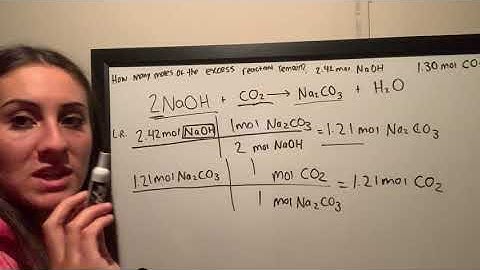 How many moles of the excess reactant remain? 2.42 mol NaOH 1.30 mol CO
2NaOH + CO₂ → Na₂CO₃ + H₂O
L.R. 2.42 mol NaOH 1 mol Na₂CO₃ = 1.21 mol Na₂CO₃
2 mol NaOH
1.21 mol Na₂CO₃ 1 mol CO₂ = 1.21 mol CO₂
1 mol Na₂CO₃